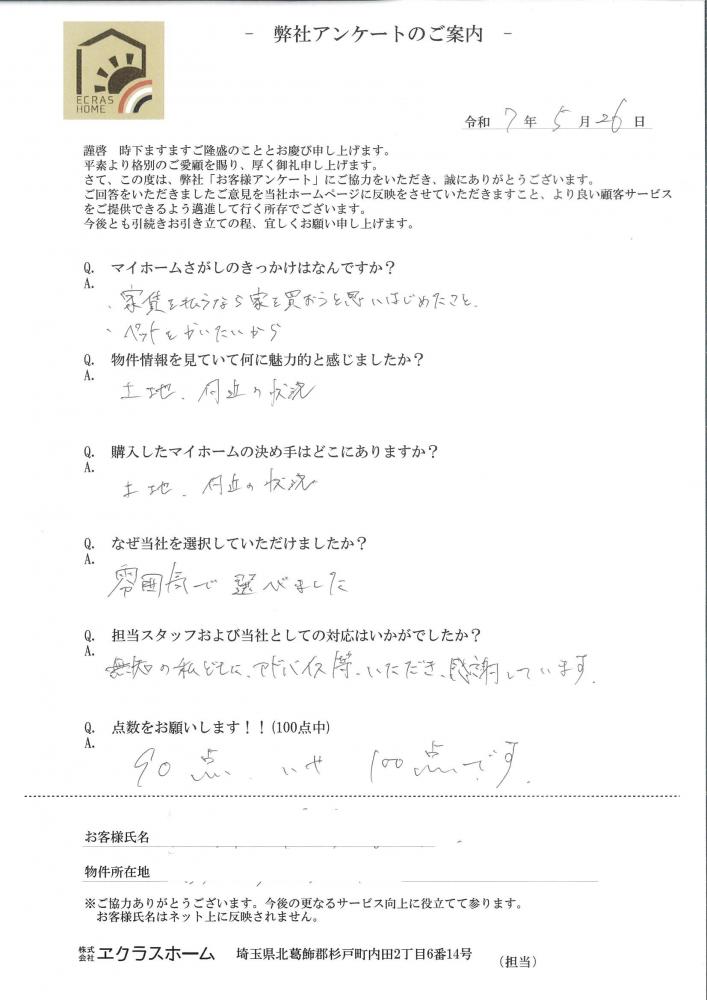 - 弊社アンケートのご案内 -
ECRAS
HOME
令和 7 年 5 月 26 日
謹啓 時下ますますご隆盛のこととお慶び申し上げます。
平素より格別のご愛顧を賜り、厚く御礼申し上げます。
さて、この度は、弊社「お客様アンケート」にご協力をいただき、誠にありがとうございます。
ご回答をいただきましたご意見を当社ホームページに反映をさせていただきますこと、より良い顧客サービス
をご提供できるよう邁進して行く所存でございます。
今後とも引続きお引き立ての程、宜しくお願い申し上げます。
Q. マイホームさがしのきっかけはなんですか？
A.
・家賃を払うなら家を買おうと思いはじめたこと.
・ペットをかいたいから
Q. 物件情報を見ていて何に魅力的と感じましたか？
A.
土地、付近の状況
Q. 購入したマイホームの決め手はどこにありますか？
A.
土地、付近の状況
Q. なぜ当社を選択していただけましたか？
A.
雰囲気で選べました
Q. 担当スタッフおよび当社としての対応はいかがでしたか？
A.
無知の私どもに、アドバイス等、いただき、感謝しています.
Q. 点数をお願いします！！(100点中)
A.
90点、いや 100点です.
お客様氏名
物件所在地
※ご協力ありがとうございます。今後の更なるサービス向上に役立てて参ります。
お客様氏名はネット上に反映されません。
株式会社 ヱクラスホーム 埼玉県北葛飾郡杉戸町内田2丁目6番14号 （担当）